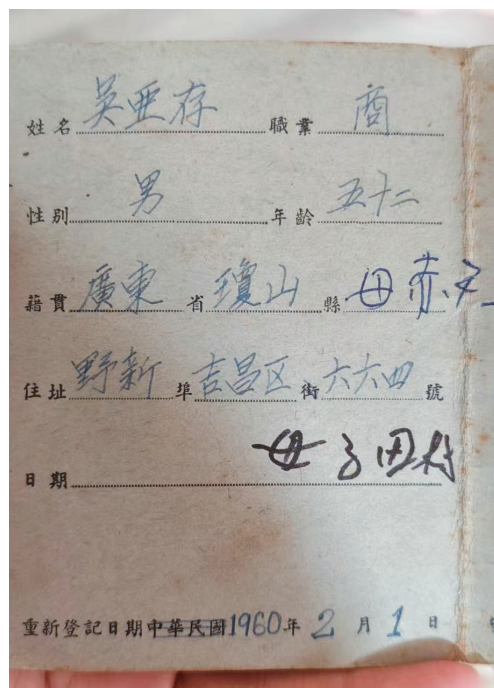 姓名 吴亜存 職業 商
性别 男 年齡 五十二
藉貫 廣東 省 瓊山 縣 毋赤
住址 野新 埠 吉昌区 街 六六四 號
毋子田村
日期
重新登記日期中華民國1960年 2 月 1 日